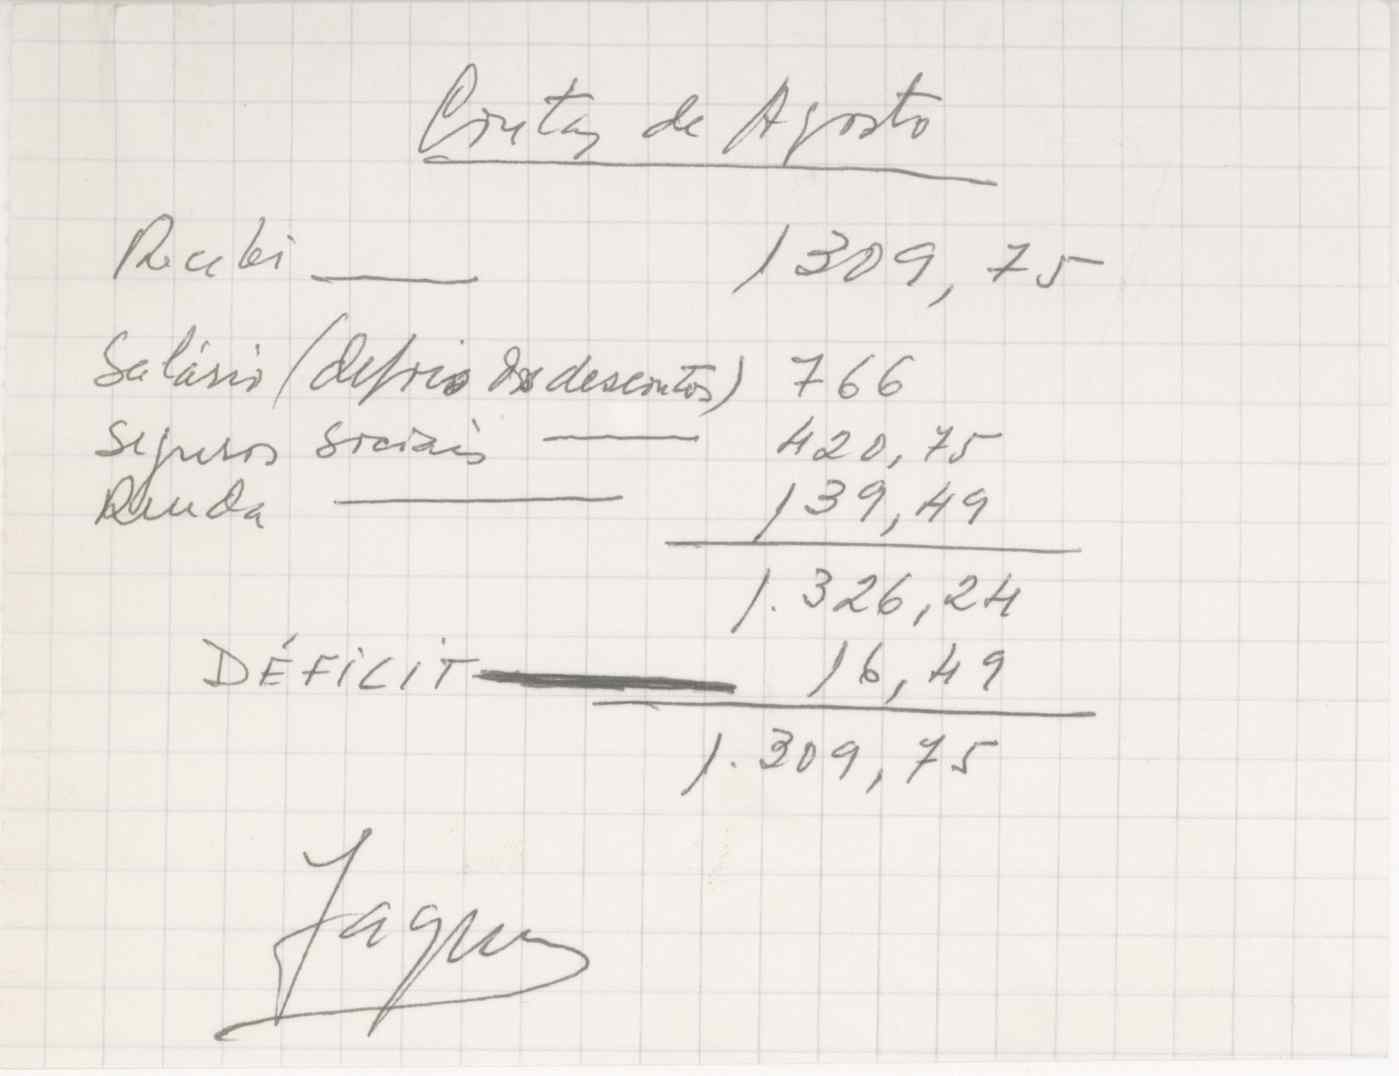 Contas de Agosto
Recebi 1309,75
Salário (depois dos descontos) 766
Seguros sociais 420,75
Renda 139,49
1.326,24
DÉFICIT 16,49
1.309,75
Jaques